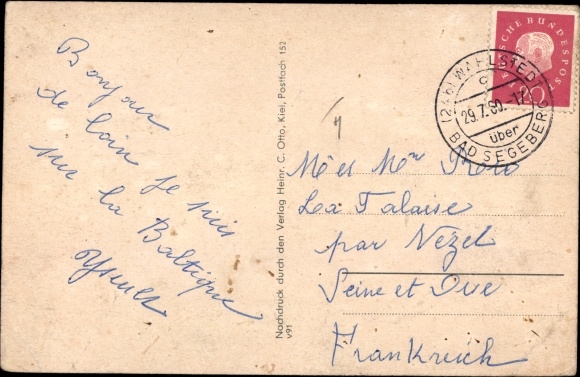 Bonjour
de loin je suis
sur la Baltique
Nachdruck durch den Verlag Heinr. C. Otto, Kiel, Postfach 152
V91
DEUTSCHE BUNDESPOST
20
(24b) WAHLSTEDT
c
29.7.60.-17
über
BAD SEGEBERG
M et Mme
La Falaise
par Nézel
Seine et Oise
Frankreich